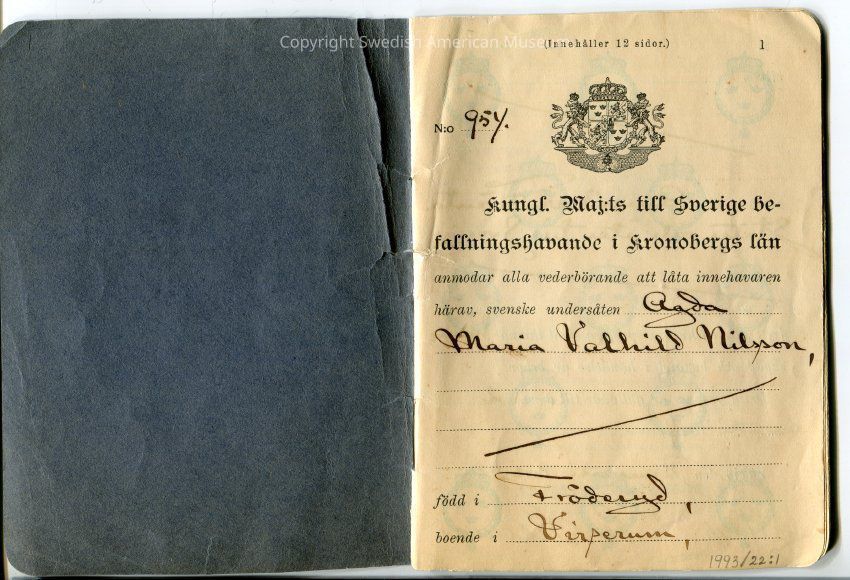 Copyright Swedish American Museum
(Innehåller 12 sidor.) 1
N:o 954.
Kungl. Maj:ts till Sverige be-
fallningshavande i Kronobergs län
anmodar alla vederbörande att låta innehavaren
härav, svenske undersåten Agda
Maria Valhild Nilsson,
född i Fröderyd,
boende i Virserum,
1993/22:1